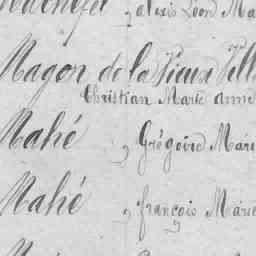 , alexis Léon Ma
Magon de la Vieux Ville
Christian Marie Anne
Mahé , Grégoire Mari
Mahé , françois Marie